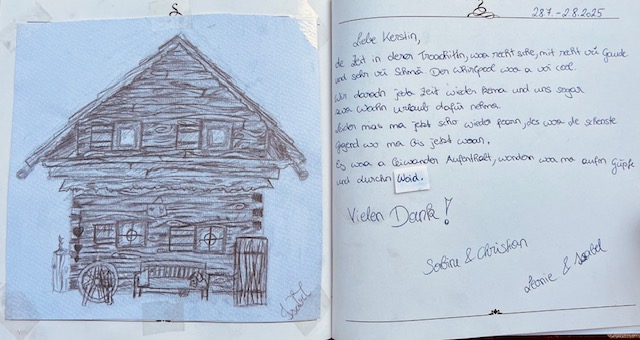 28.7. - 2.8.2025
Liebe Kerstin,
de Zeit in deren Troadhittn, woa recht sche, mit recht vü Gaude
und sehr vü Da Whirlpool woa a voi cool.
Wir daradn jede Zeit wieder kema und uns sogar
zwa Wochn Urlaub dafür nehma.
Leider mias ma jetzt scho wieder foarn, des woa de schenste
Gegend wo ma bis jetzt woarn.
Es woa a leiwander Aufenthalt, wondern woa ma aufn Gupfe
und durchn Woid.
Vielen Dank!
Sabine & Christian
Leonie & Isabel
Isabel